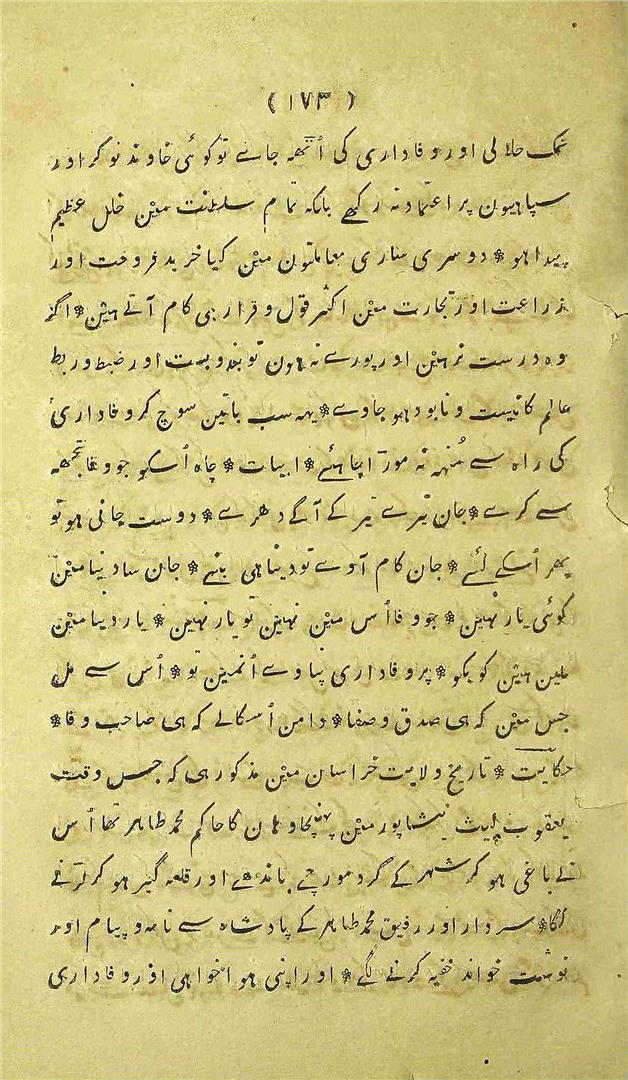 ( ١٧٣ )
نمک حلالی اور وفاداری کی اُٹھہ جاے تو کوئی خاوند نوکر اور
سپاهیون پر اعتماد نہ رکھے بلکہ تمام سلطنت مین خلل عظیم
پیدا هو * دوسری ساری معاملتون مین کیا خرید فروخت اور
زراعت اور تجارت مین اکثر قول و قرار هی کام آتے هین * اگر
وہ درست نرهین اور پورے نہ هون تو بندوبست اور ضبط و ربط
عالم کا نیست و نابود هو جاوے * یہہ سب باتین سوچ کر وفاداری
کی راہ سے مُنہہ نہ موڑا چاهئے * ابیات * چاہ اُسکو جو وفا تجھہ
سے کرے * جان تیرے تیر کے آگے دهرے * دوست جانی هو تو
پھر اُسکے لئے * جان کام آوے تو دینا هی بنے * جان سا دنیا مین
کوئی یار نہین * جو وفا اُس مین نہین تو یار نہین * یار دنیا مین
ملین هین کو بکو * پر وفاداری نپاوے اُنمین تو * اُس سے مل
جس مین کہ هی صدق و صفا * دامن اُسکا لے کہ هی صاحب وفا *
حکایت * تاریخ ولایت خراسان مین مذکور هی کہ جس وقت
یعقوب لیث نیشاپور مین پہنچا وهان کا حاکم محمد طاهر تھا اُس
نے باغی هو کر شہر کے گرد مورچے باندهے اور قلعہ گیر هو کر لڑنے
لگا * سردار اور رفیق محمد طاهر کے پادشاہ سے نامہ و پیام اور
نوشت خواند خفیہ کرنے لگے * اور اپنی هوا خواهی اور وفاداری